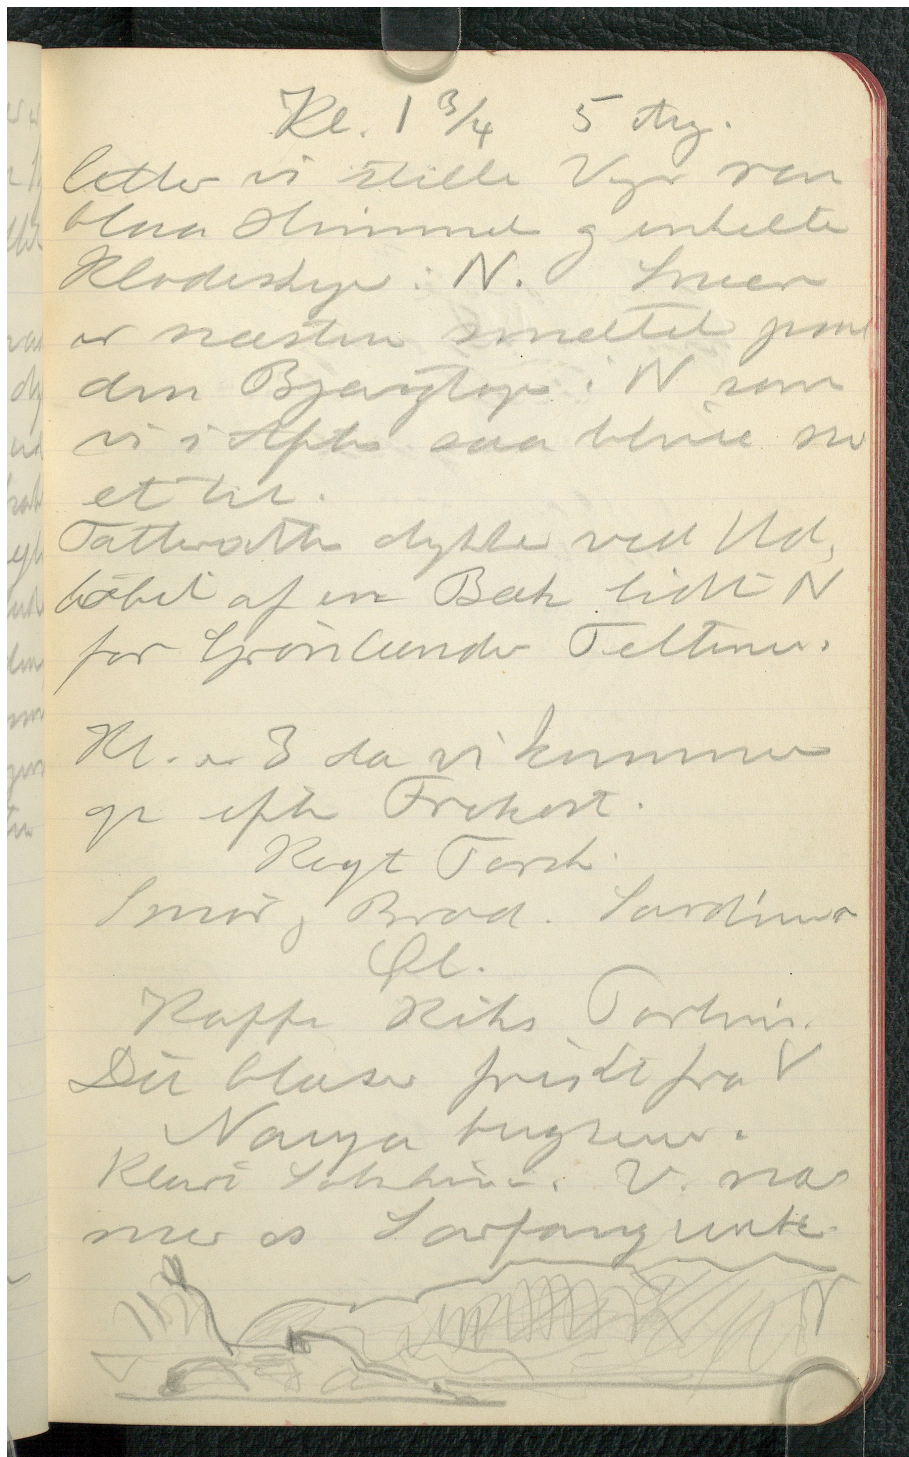 Kl. 1 3/4 5 Aug.
letter vi stille Vejr ren
blaa Himmel og enkelte
Klodeskyer i N. Sneen
er næsten smeltet paa
den Bjergtop i N som
vi i Aftes saa blive
et hel.
Tatteratte dykker ved Ud,
løbet af en Bæk lidt N
for Grönlænder Teltene.
Kl. er 3 da vi kommer
op efter Frokost.
Kogt Torsk.
Smör og Bröd. Sardiner
Öl.
Kaffe Kiks Portvin.
Det blæser friskt fra V
Klart Solskin. V. næ
mer os Sarfanguak
N